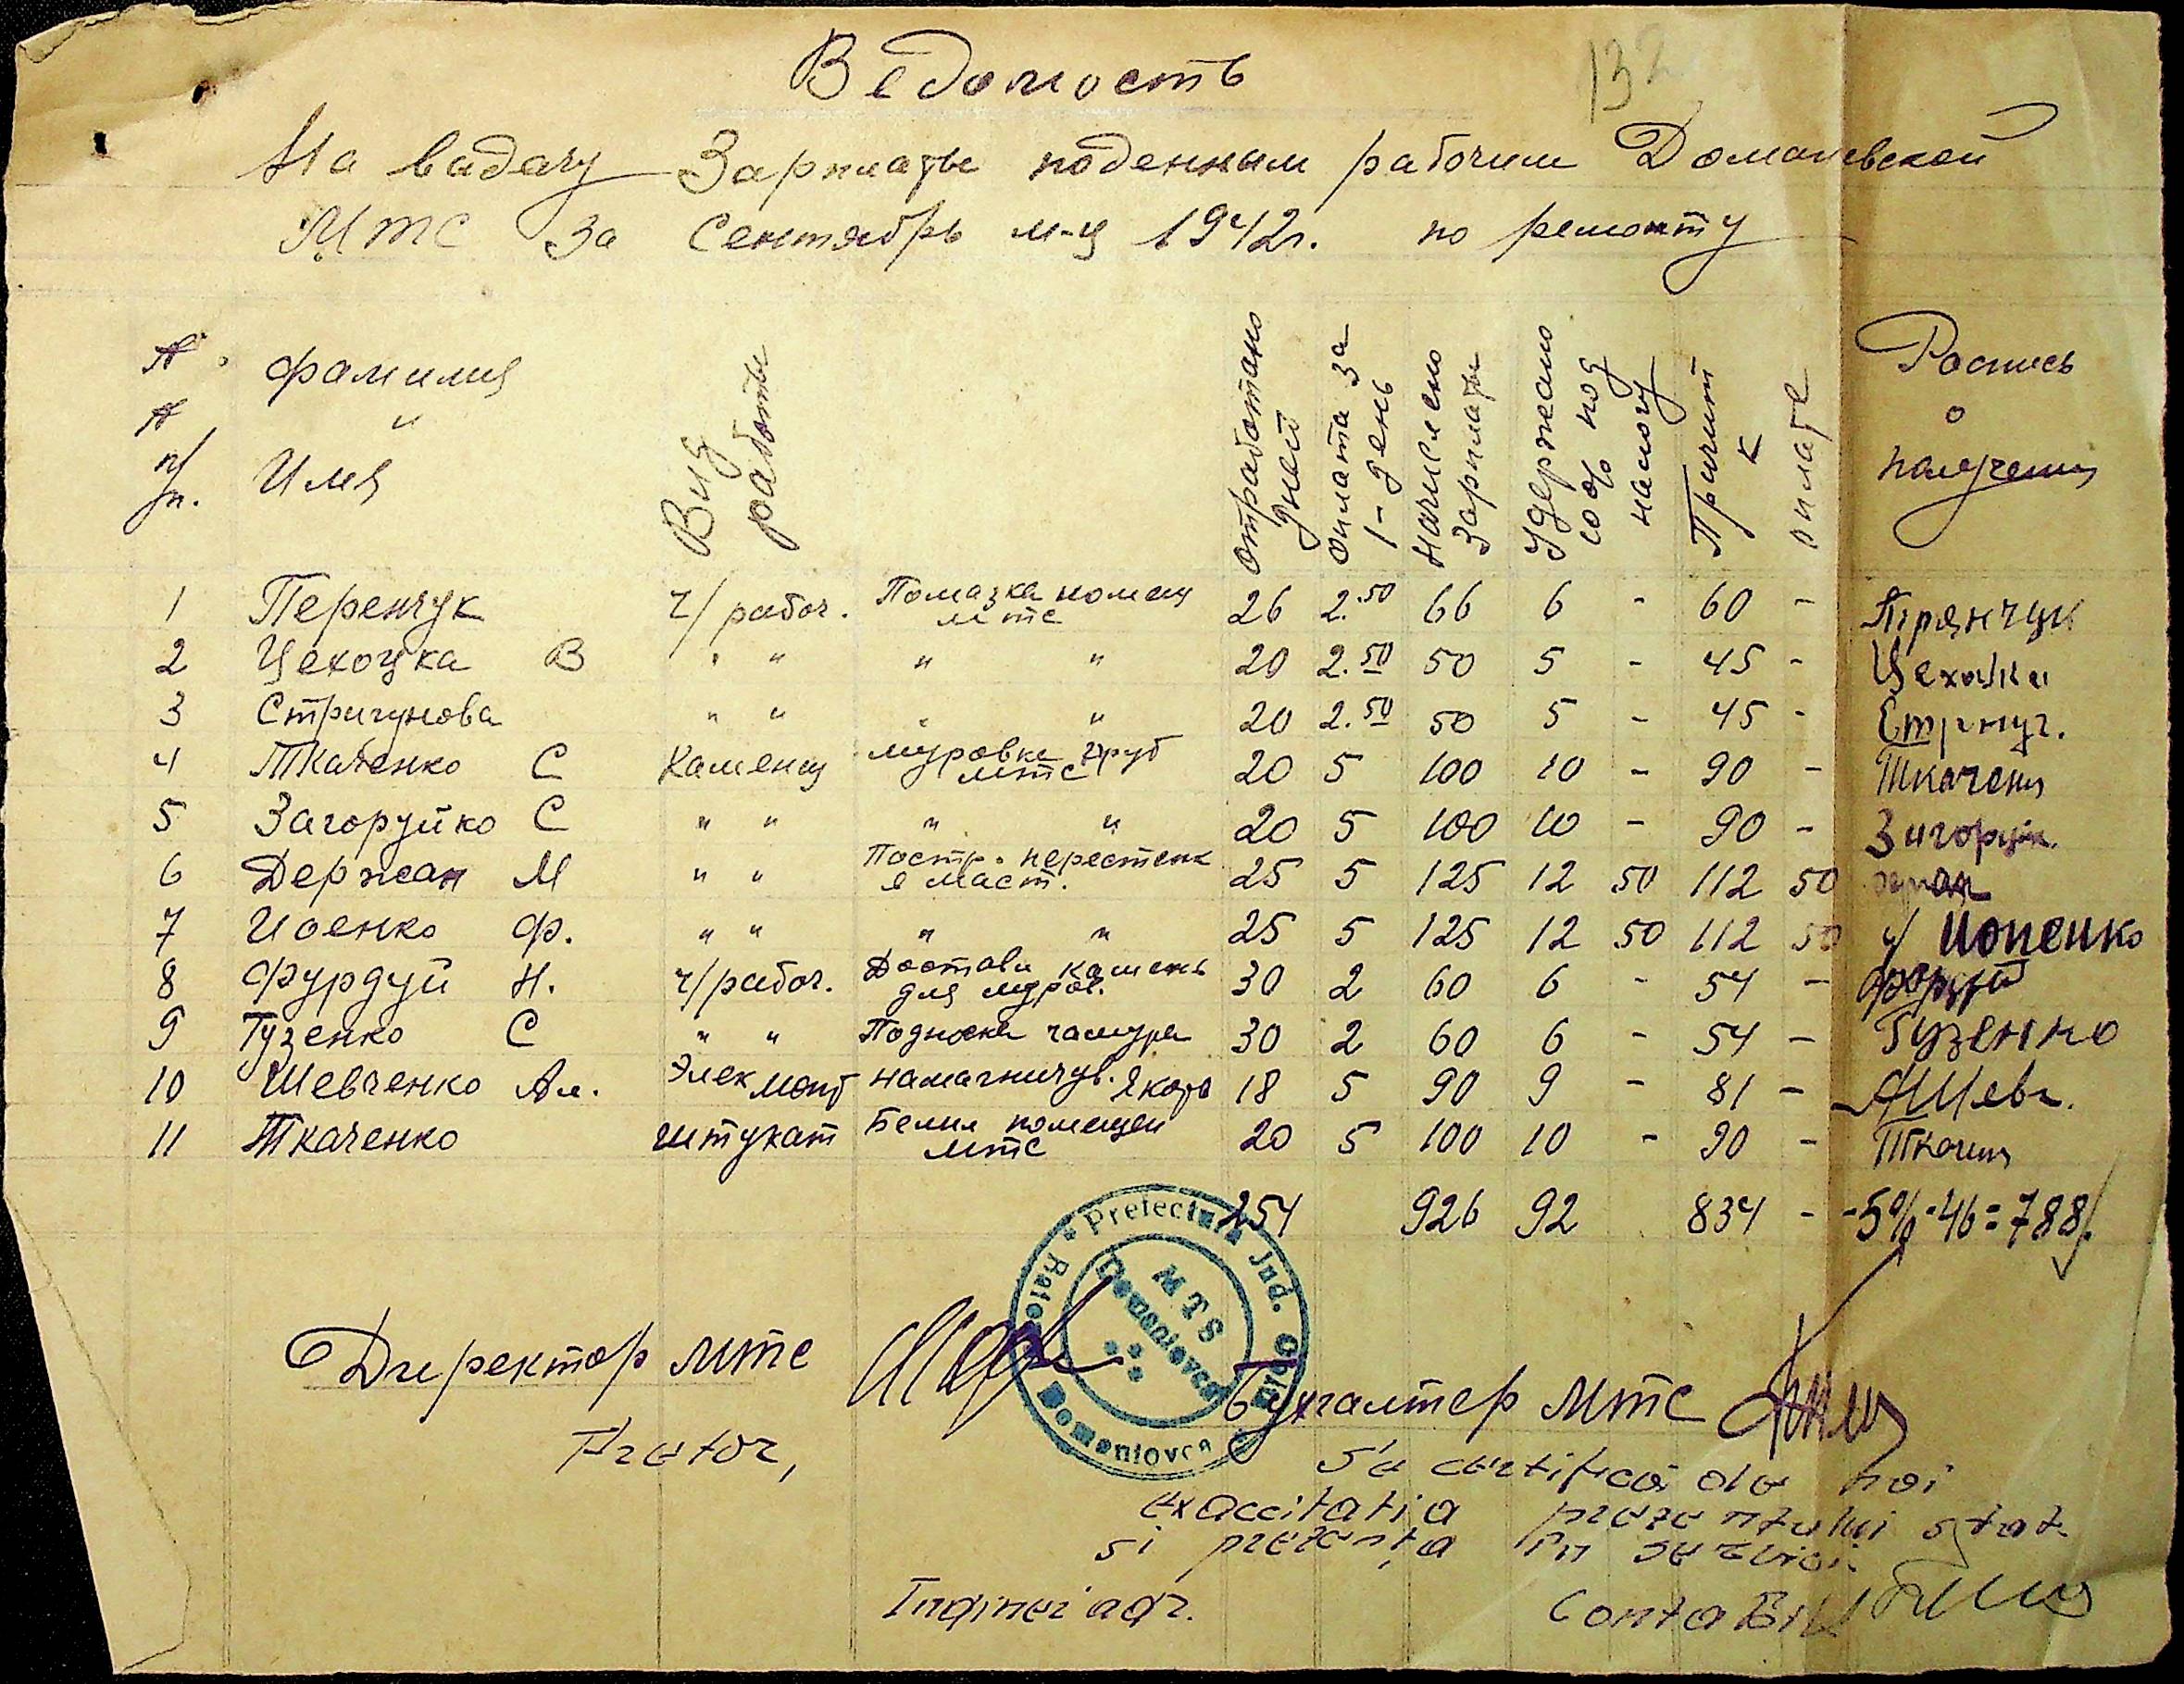 132
Ведомость
На вадачу Зарплаты поденным рабочим Доманевской
МТС За Сентябрь м-ц 1942г. по ремонту
№ № п/п. фамилия и Имя Вид работы Отработано дней оплата за 1-день Начислено Зарплаты Удержано 10% под налогу Причит к оплате Роспись о получении
1 Перенчук ч/рабоч. Помазка помещ мтс 26 2.50 66 6 - 60 - Пірянчук
2 Цехоцка В " " " " 20 2.50 50 5 - 45 - Цехоцка
3 Стригунова " " " " 20 2.50 50 5 - 45 - Стригуг.
4 Ткаченко С Каменщ муровка груб мтс 20 5 100 10 - 90 - Ткачен
5 Загоруйко С " " " " 20 5 100 10 - 90 - Загоруйк.
6 Держан М " " Постр. перестенк в маст. 25 5 125 12 50 112 50
7 Иоенко Ф. " " " " 25 5 125 12 50 112 50 Иопенко
8 Фурдуй Н. ч/рабоч. Достави камень для муров. 30 2 60 6 - 54 - Фурдуй
9 Гузенко С " " Подноска чамура 30 2 60 6 - 54 - Гузенко
10 Шевченко Ал. Элек монт намагничув. Якоря 18 5 90 9 - 81 - АШевч.
11 Ткаченко штукат Белил помещен мтс 20 5 100 10 - 90 - Ткачен
254 926 92 834 - -5%-46=788/.
Prefectura Jud. Raion Domaniovca
MTS
Domaniovca
Директор мтс Бухгалтер мтс
Pretor,
Să certifică de noi
exaccitatia prezentului stat
si prezența în servici
Inginer agr. Contabil